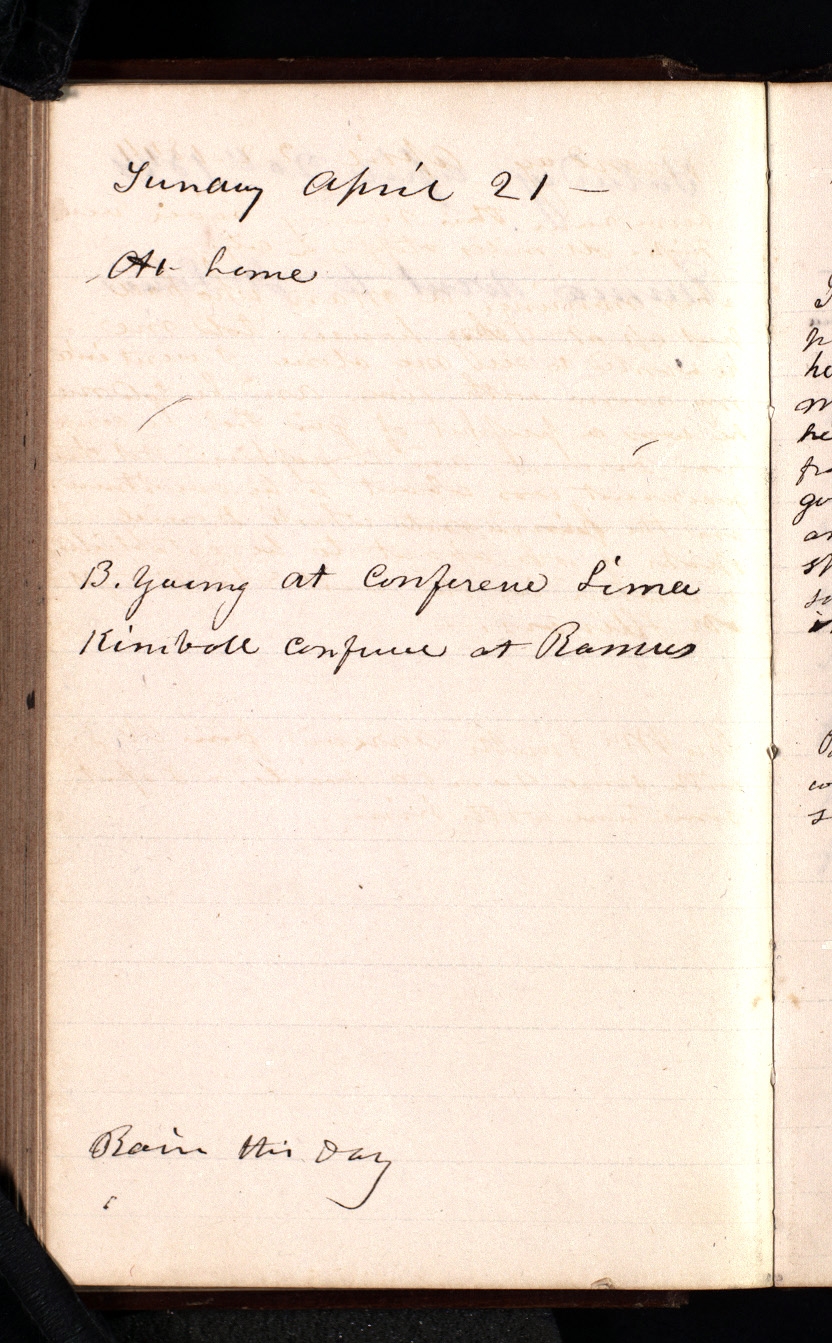 Sunday April 21 —
At home
B. Young at Conferene Lima
Kimball confrene at Ramus
Rain this Day